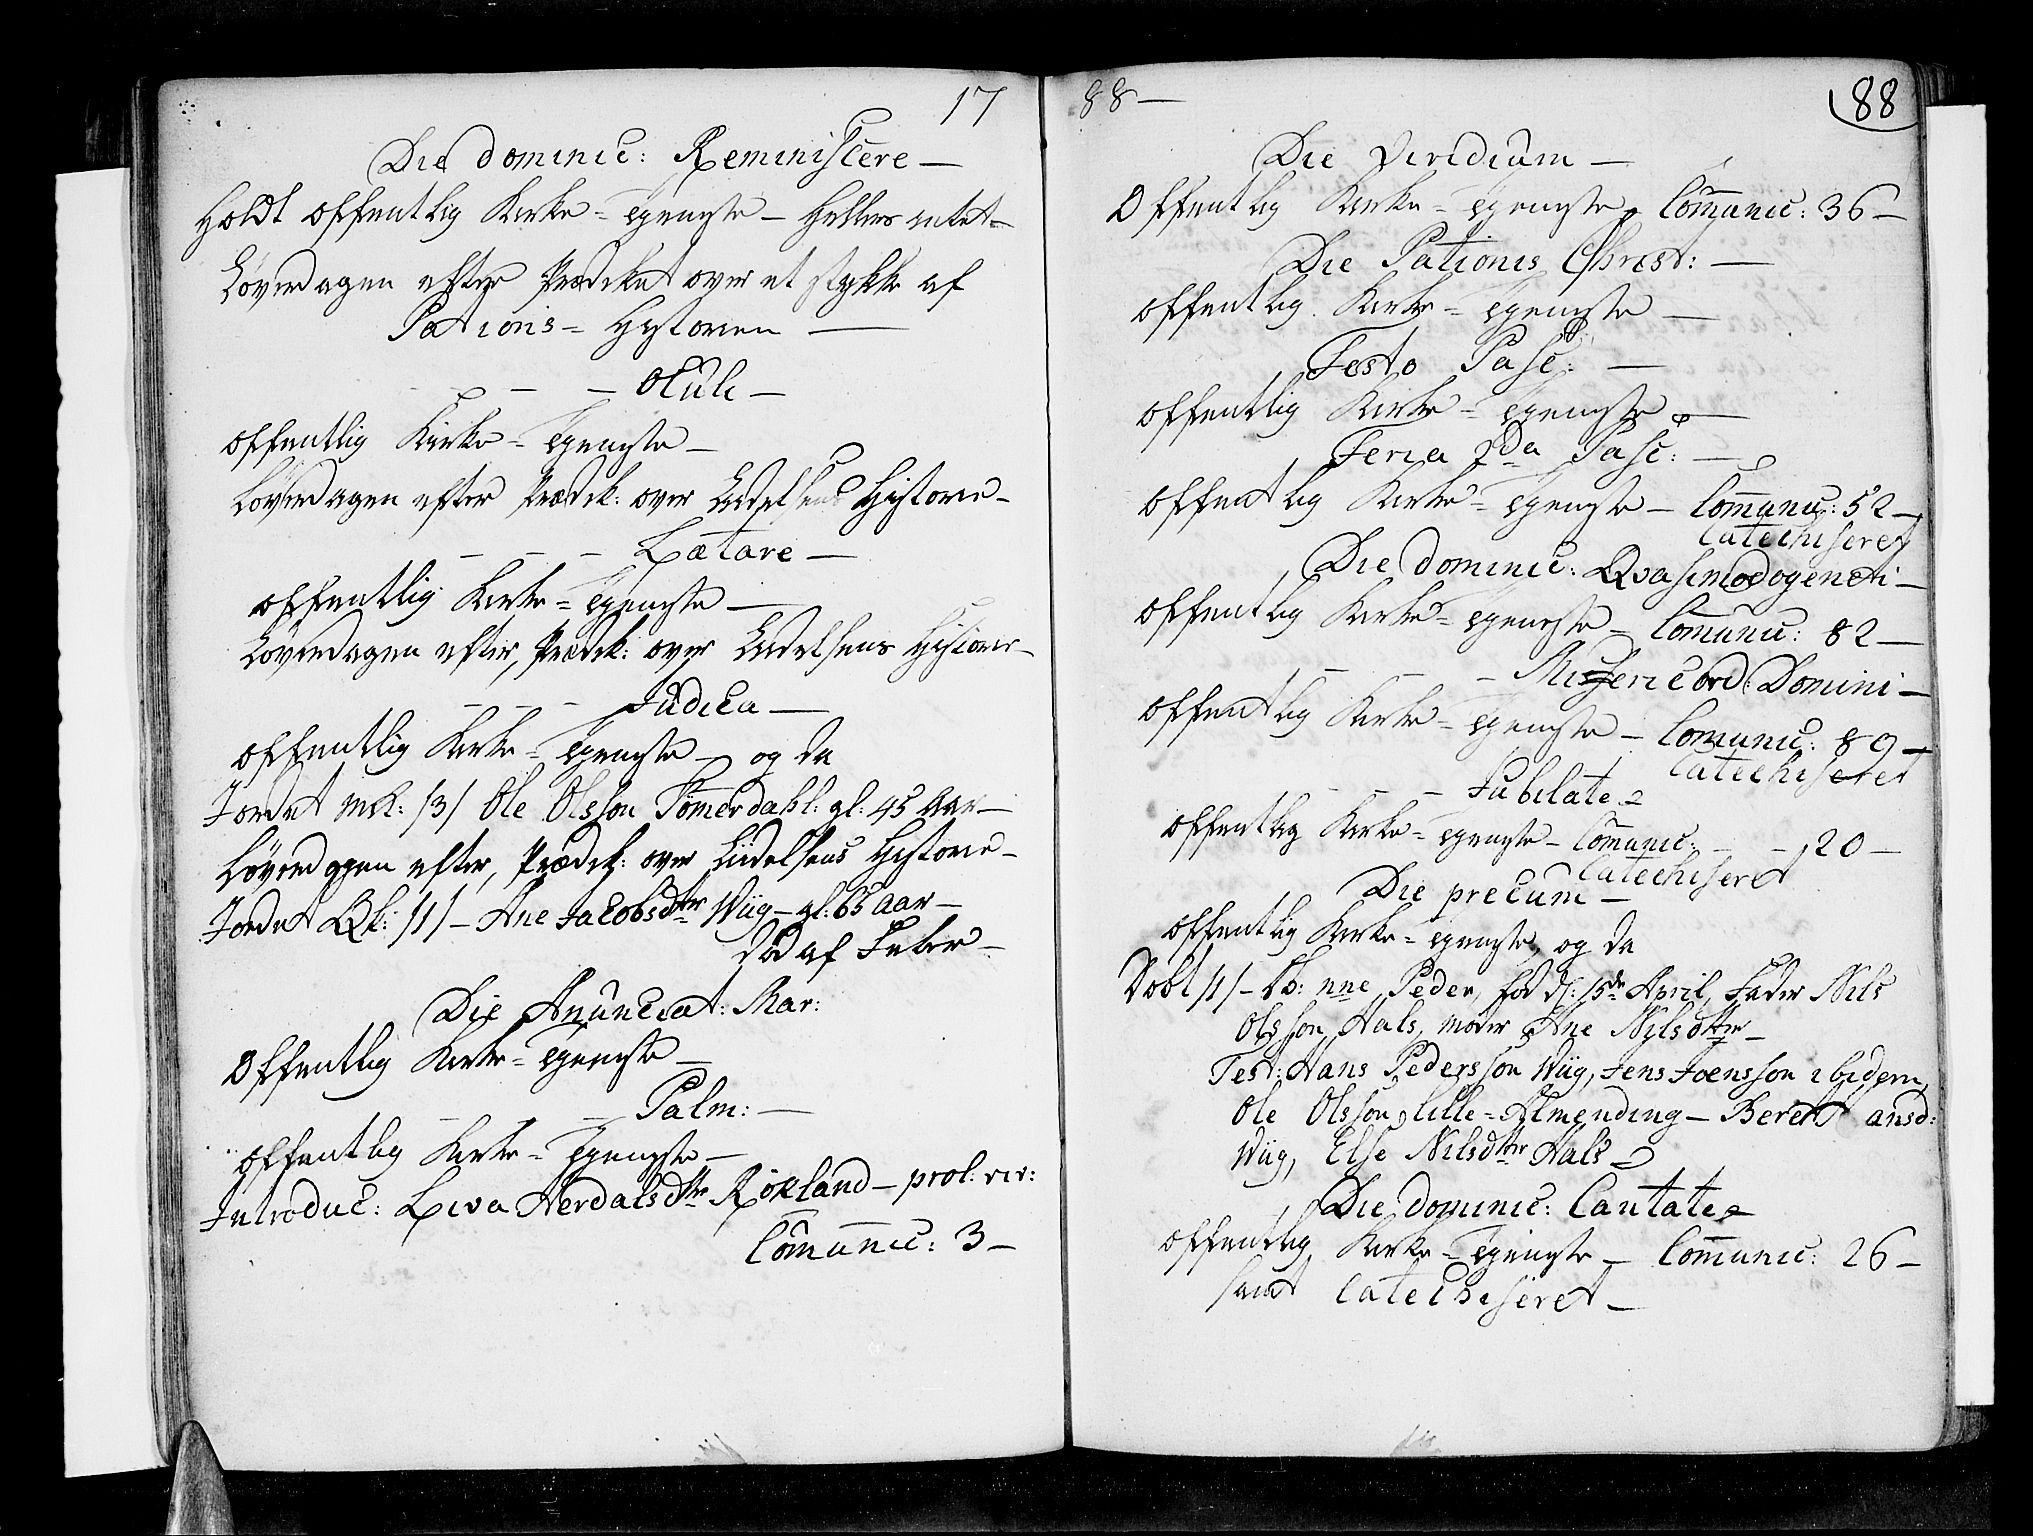 17
Die dominic: Reminiscere —
Holdt offentlig Kirke = Tieneste — Hellers intet —
Løverdagen efter Prædiket over et stykke af
Pations = Historien —
— — — Oculi —
offentlig Kirke = Tieneste —
Løverdagen efter Prædik: over Lidelsens Historie —
— — — Lætare —
offentlig Kirke = Tieneste —
Løverdagen efter, Prædik: over Lidelsens Historie —
— — — Judica —
offentlig Kirke = Tieneste — og da
Jordet Mk: /3/ Ole Olsson Tömerdahl: gl: 45 Aar —
Løverdagen efter, Prædik: over Liidelsens Historie —
Jordet Qk: /1/ — Ane Jacobsdttr Wiig — gl: 65 Aar —
död af Feber —
Die Anunciat: Mar:
Offentlig Kirke = Tieneste —
— — Palm: —
offentlig Kirke = Tieneste —
Introduc: Liva Herdalsdttr Rökland — prol: vir:
Comunic: 3 —
88 —
88
Die Viridium —
Offentlig Kirke = Tieneste — Comunic: 36 —
Die Pationis Christ: —
offentlig Kirke = Tieneste —
Festo Pasc: —
offentlig Kirke = Tieneste —
Feria 2da Pasc: —
offentlig Kirke = Tieneste — Comunic: 52 —
Catechiseret
Die dominic: Qvasimodogeneti —
offentlig Kirke = Tieneste — Comunic: 82 —
— — — Misericord: Domini —
offentlig Kirke = Tieneste — Comunic: 89 —
Catechiseret
— — — Jubilate
offentlig Kirke = Tieneste — Comunic: — — 20 —
Catechiseret
Die precum —
offentlig Kirke = Tieneste, og da
Döbt /1/ — Db: nne Peder, föd d: 15de April, Fader Nils
Olsson Hals, moder Ane Nilsdttr —
Test: Hans Pedersson Wiig, Jens Joensson ibidem,
Ole Olsson lille = Almending — Beret ansd:
Wiig, Else Nilsdttr Hals
Die dominic: Cantate
offentlig Kirke = Tieneste — Comunic: 26 —
samt Catechiseret —